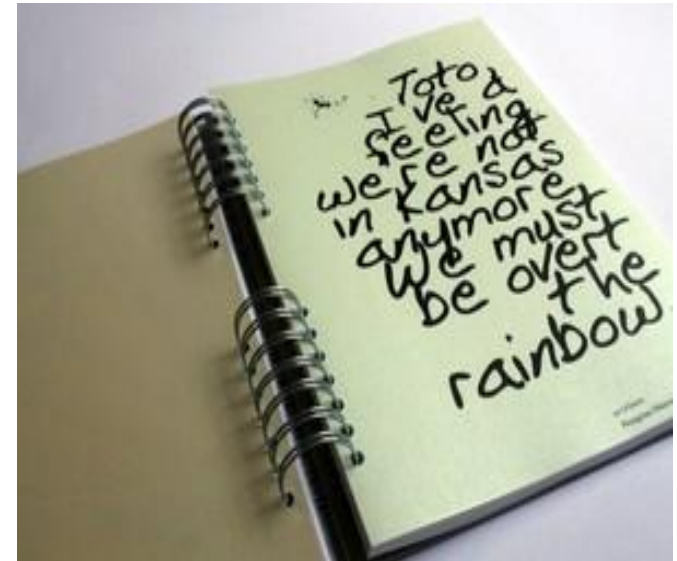 Toto
I've a
feeling
we're not
in Kansas
anymore
We must
be overt
the
rainbow.